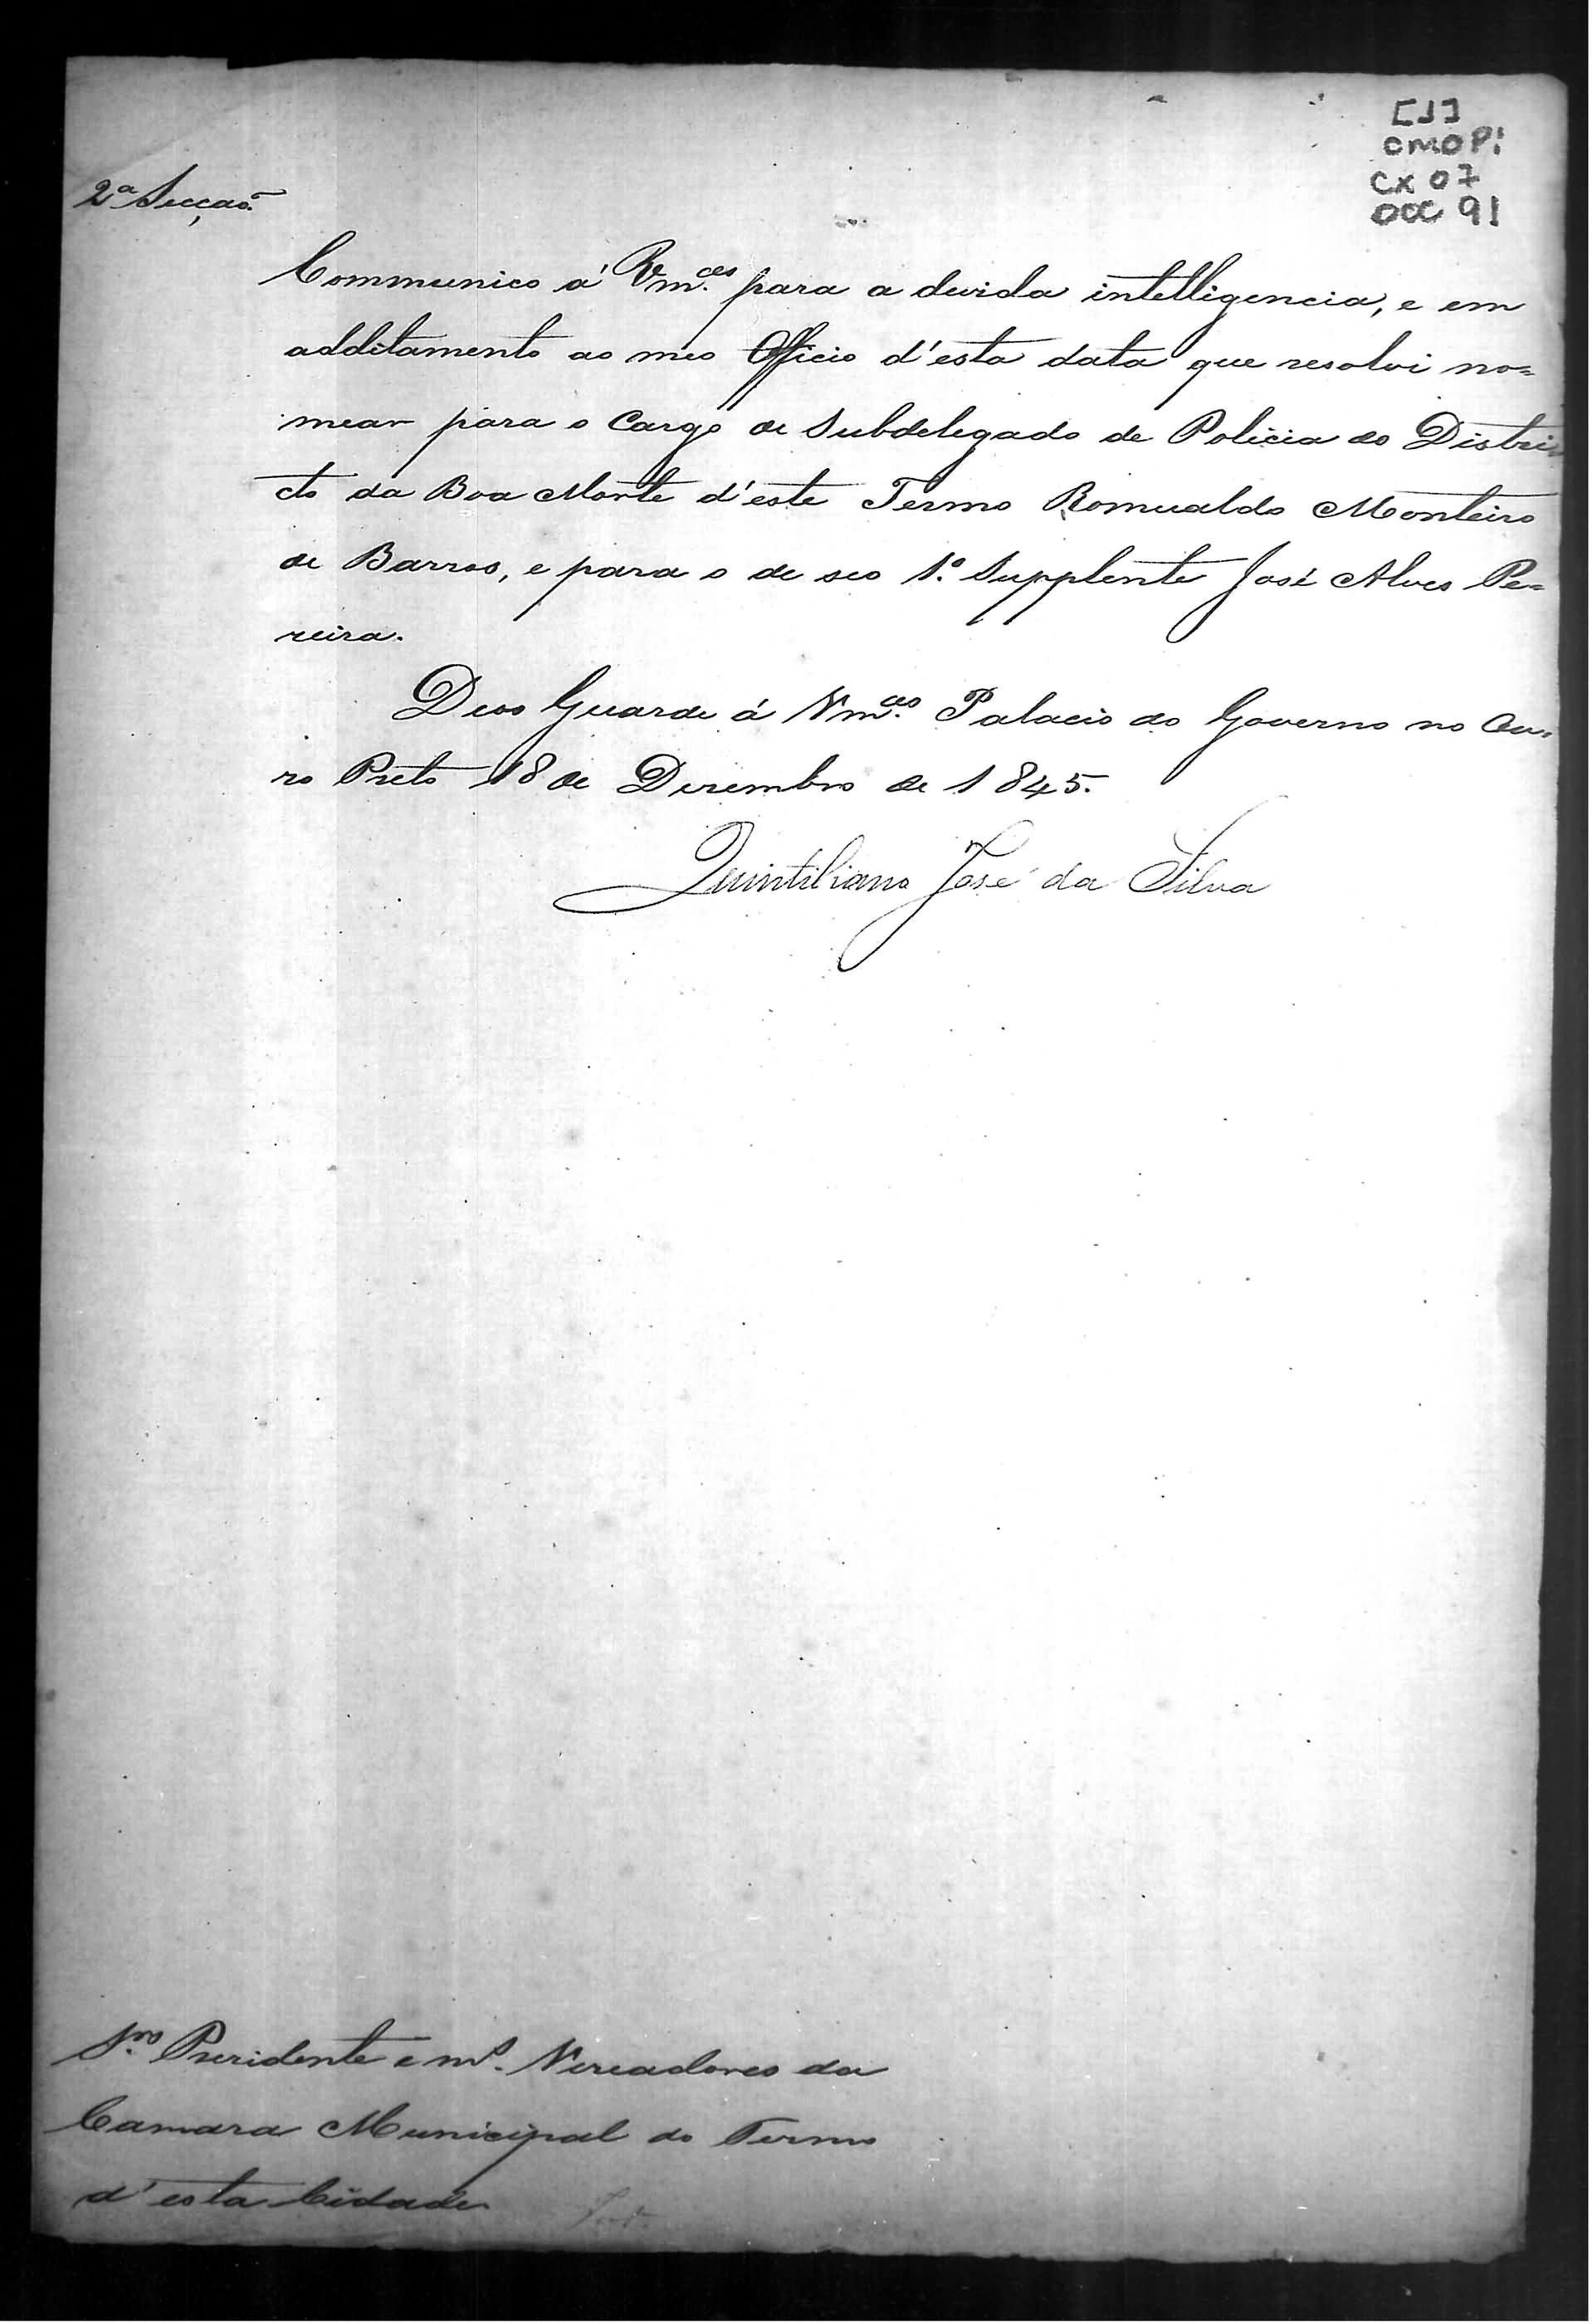 [J]
CMOP:
CX 07
DOC 91
2ª Secção
Communico á Vm.ces para a devida intelligencia, e em
additamento ao meo Officio d'esta data que resolvi no=
mear para o Cargo de Subdelegado de Policia do Distri
cto da Boa Morte d'este Termo Romualdo Monteiro
de Barros, e para o de seo 1.º Supplente José Alves Pe=
reira.
Deos Guarde á Vm.ces Palacio do Governo no Ou=
ro Preto 18 de Dezembro de 1845.
Quintiliano José da Silva
Sr.es Prezidente e m.s Vereadores da
Camara Municipal do Termo
d'esta Cidade